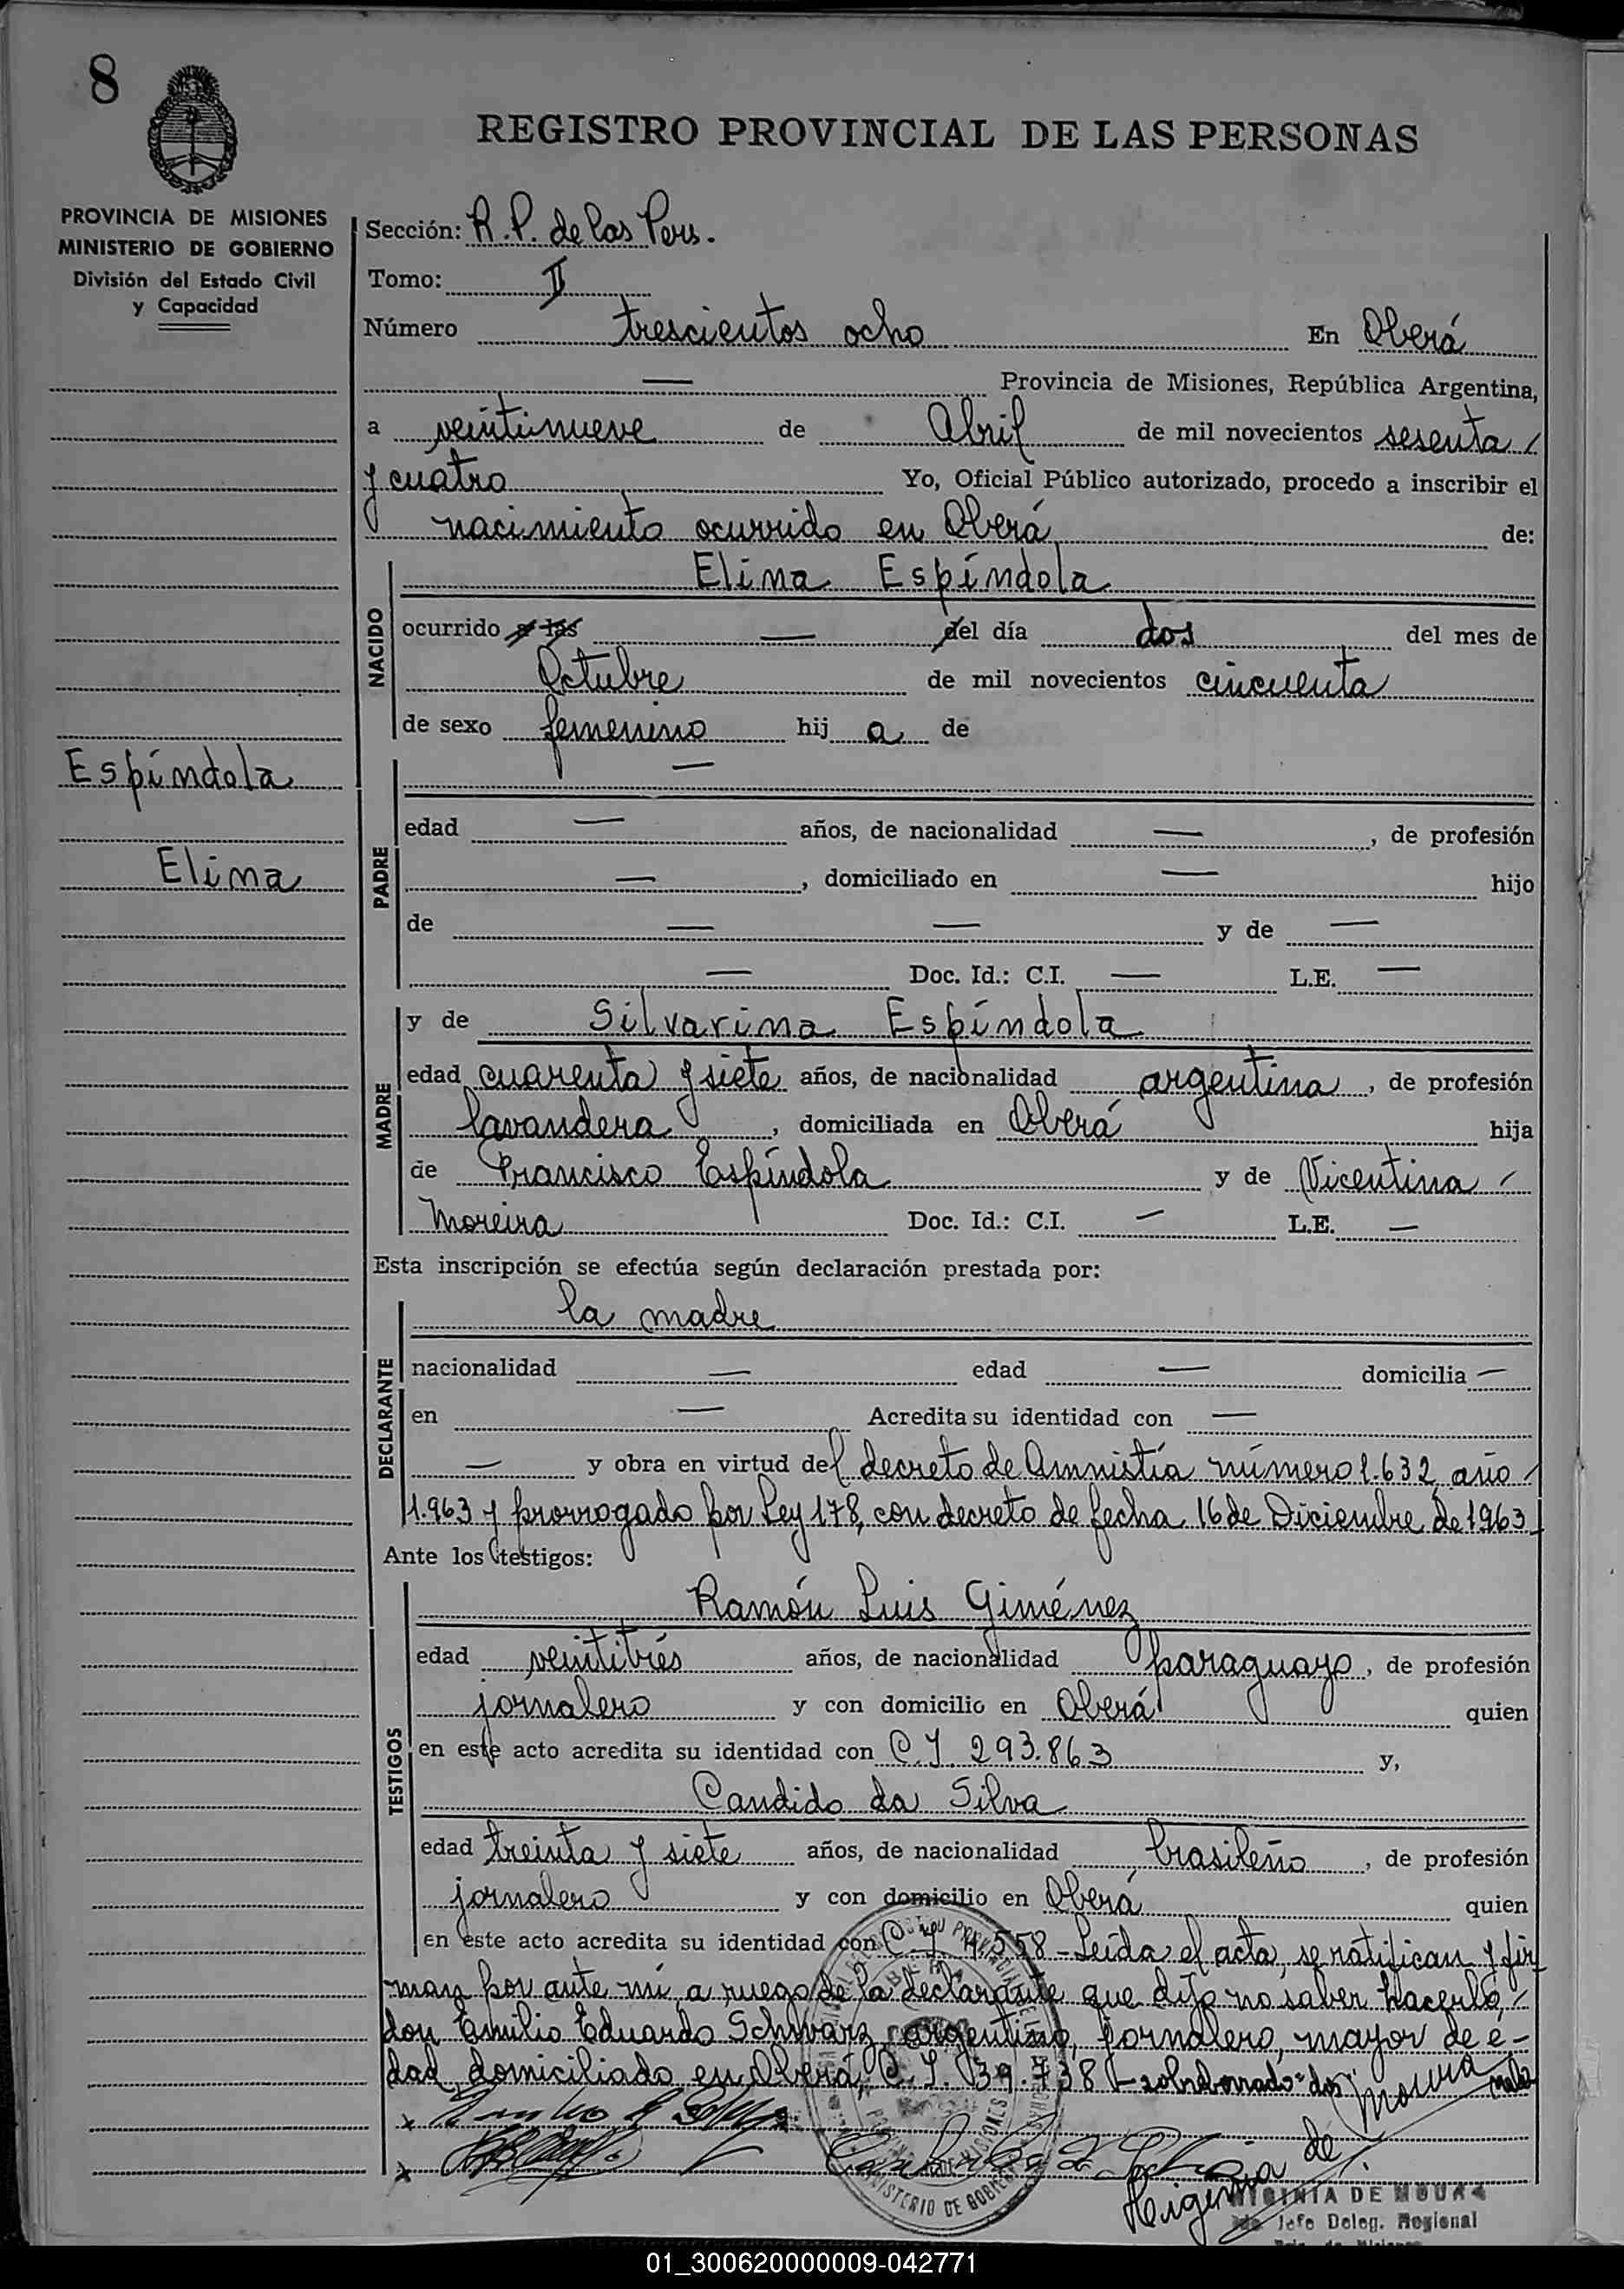 8
REGISTRO PROVINCIAL DE LAS PERSONAS
PROVINCIA DE MISIONES
MINISTERIO DE GOBIERNO
División del Estado Civil
y Capacidad
Sección: R. P. de las Pers.
Tomo: II
Número trescientos ocho En Oberá
— Provincia de Misiones, República Argentina,
a veintinueve de Abril de mil novecientos sesenta /
y cuatro Yo, Oficial Público autorizado, procedo a inscribir el
nacimiento ocurrido en Oberá de:
NACIDO
Elina Espíndola
ocurrido a las — del día dos del mes de
Octubre de mil novecientos cincuenta
de sexo femenino hij a de
Espíndola
Elina
PADRE
—
edad — años, de nacionalidad —, de profesión
—, domiciliado en — hijo
de — — y de —
— Doc. Id.: C.I. — L.E. —
MADRE
y de Silvarina Espíndola
edad cuarenta y siete años, de nacionalidad argentina, de profesión
lavandera, domiciliada en Oberá hija
de Francisco Espíndola y de Vicentina /
Moreira Doc. Id.: C.I. — L.E. —
Esta inscripción se efectúa según declaración prestada por:
DECLARANTE
la madre
nacionalidad — edad — domicilia —
en — Acredita su identidad con —
— y obra en virtud del decreto de Amnistía número 1.632, año /
1.963 y prorrogado por Ley 178, con decreto de fecha 16 de Diciembre de 1963
Ante los testigos:
TESTIGOS
Ramón Luis Giménez
edad veintitrés años, de nacionalidad paraguayo, de profesión
jornalero y con domicilio en Oberá quien
en este acto acredita su identidad con C.I. 293.863 y,
Candido da Silva
edad treinta y siete años, de nacionalidad brasileño, de profesión
jornalero y con domicilio en Oberá quien
en este acto acredita su identidad con C. I. 4.558 - Leída el acta, se ratifican y fir
man por ante mí, a ruego de la declarante que dijo no saber hacerlo, /
don Emilio Eduardo Schwarz, argentino, jornalero, mayor de e-
dad, domiciliado en Oberá, C. I. 139.738 - sobreborrado "dos" vale
Higinia de Moura
HIGINIA DE MOURA
Jefe Deleg. Regional
MINISTERIO DE GOBIERNO
01_300620000009-042771